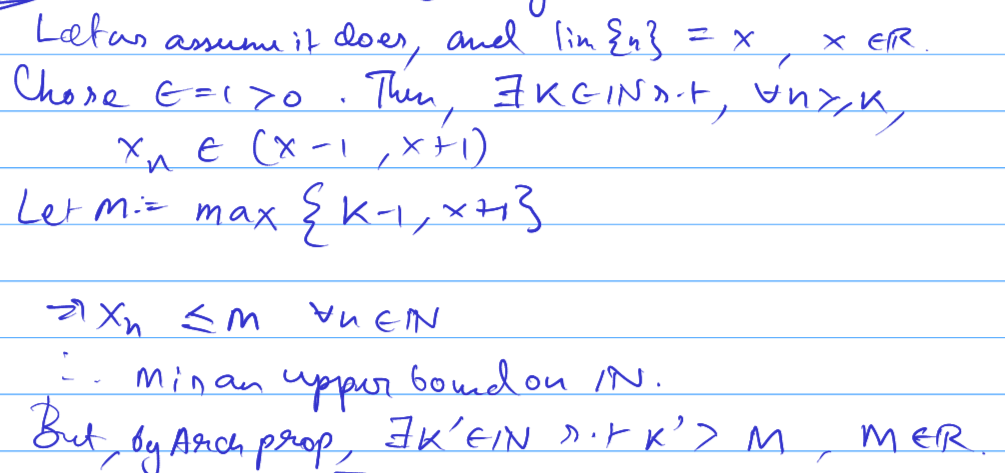 Let us assume it does, and lim {n} = x, x ∈ ℝ.
Chose ε=1>0. Then, ∃K∈ℕ s.t, ∀n≥K,
xₙ ∈ (x-1, x+1)
Let M:= max {K-1, x+1}
⇒ xₙ ≤ M ∀n∈ℕ
∴ M is an upper bound on ℕ.
But, by Arch prop, ∃K'∈ℕ s.t K' > M, M∈ℝ.